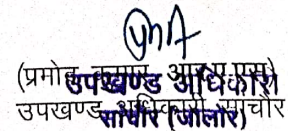 (प्रमोद कुमार आर.ए.एस)
उपखण्ड अधिकारी
उपखण्ड अधिकारी सांचौर
सांचौर (जालौर)